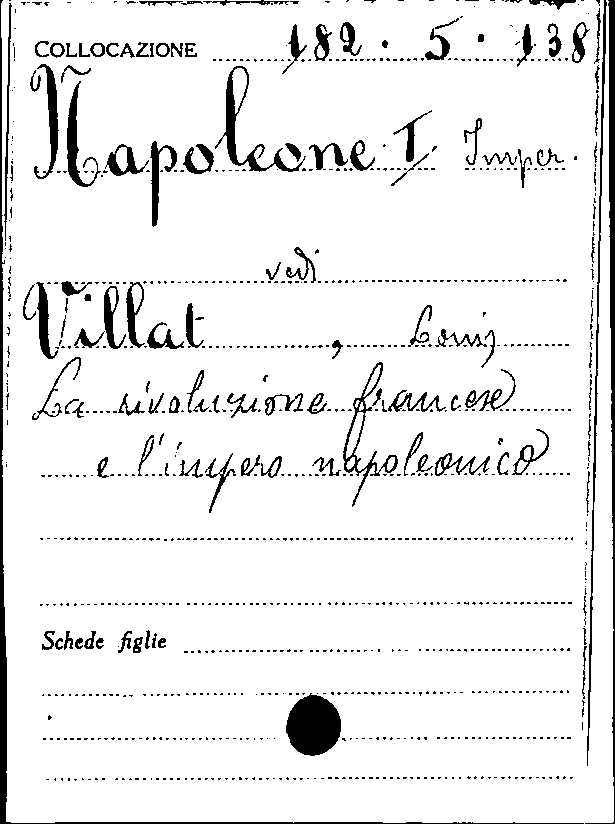 COLLOCAZIONE 182 . 5 . 138
Napoleone I Imper.
vedi
Villat, Louis
La rivoluzione francese
e l'impero napoleonico
Schede figlie